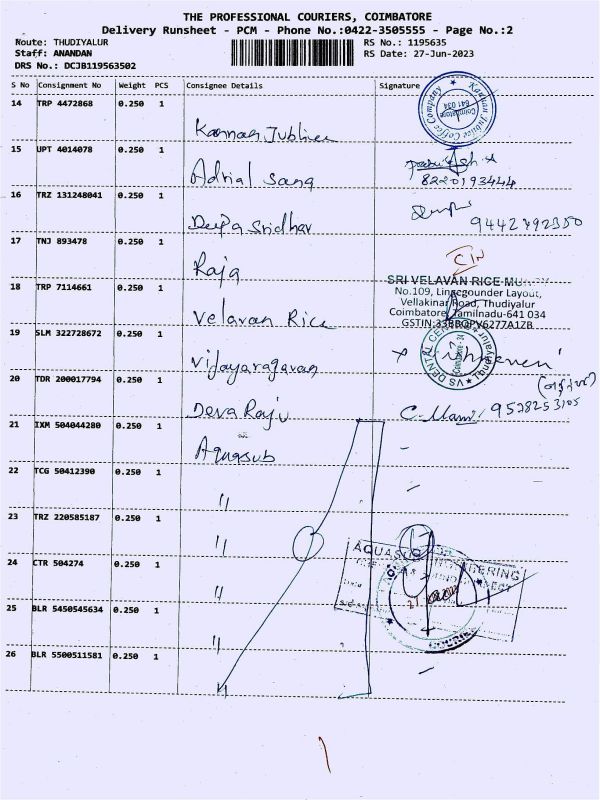 THE PROFESSIONAL COURIERS, COIMBATORE
Delivery Runsheet - PCM - Phone No.:0422-3505555 - Page No.:2
Route: THUDIYALUR
RS No.: 1195635
Staff: ANANDAN
RS Date: 27-Jun-2023
DRS No.: DCJB119563502
S No Consignment No Weight PCS Consignee Details Signature
14 TRP 4472868 0.250 1 Kannan Jubliee
Kannan Jubilee Coffee Company
Coimbatore 641 034
15 UPT 4014078 0.250 1 Adrial Sang
8220193444
16 TRZ 131248041 0.250 1 Deepa Sridhar 9442792350
17 TNJ 893478 0.250 1 Raja
18 TRP 7114661 0.250 1 Velavan Rice
SRI VELAVAN RICE
No.109, Lingegounder Layout,
Vellakinar Road, Thudiyalur
Coimbatore, Tamilnadu-641 034
19 SLM 322728672 0.250 1 Vijayaragavan
VS DENTAL
20 TDR 200017794 0.250 1 Deva Raju
9528253105
21 IXM 504044280 0.250 1 Aquasub
22 TCG 50412390 0.250 1 "
23 TRZ 220585187 0.250 1 "
AQUASUB ENGINEERING
24 CTR 504274 0.250 1 "
25 BLR 5450545634 0.250 1 "
26 BLR 5500511581 0.250 1 "